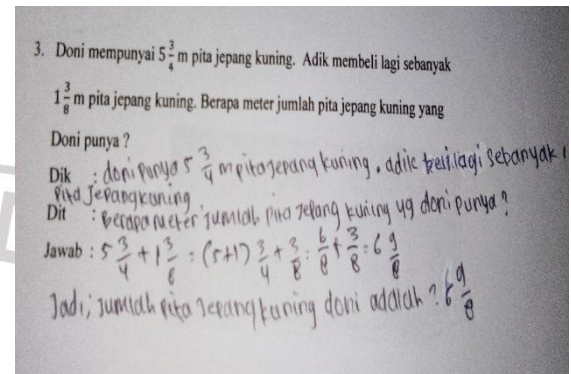 3. Doni mempunyai 5 3/4 m pita jepang kuning. Adik membeli lagi sebanyak
1 3/8 m pita jepang kuning. Berapa meter jumlah pita jepang kuning yang
Doni punya ?
Dik : doni punya 5 3/4 m pita jepang kuning, adik beli lagi sebanyak 1
pita Jepang kuning
Dit : Berapa meter jumlah pita jepang kuning yg doni punya ?
Jawab : 5 3/4 + 1 3/8 : (5+1) 3/4 + 3/8 : 6/8 + 3/8 : 6 9/8
Jadi, jumlah pita jepang kuning doni adalah ? 6 9/8